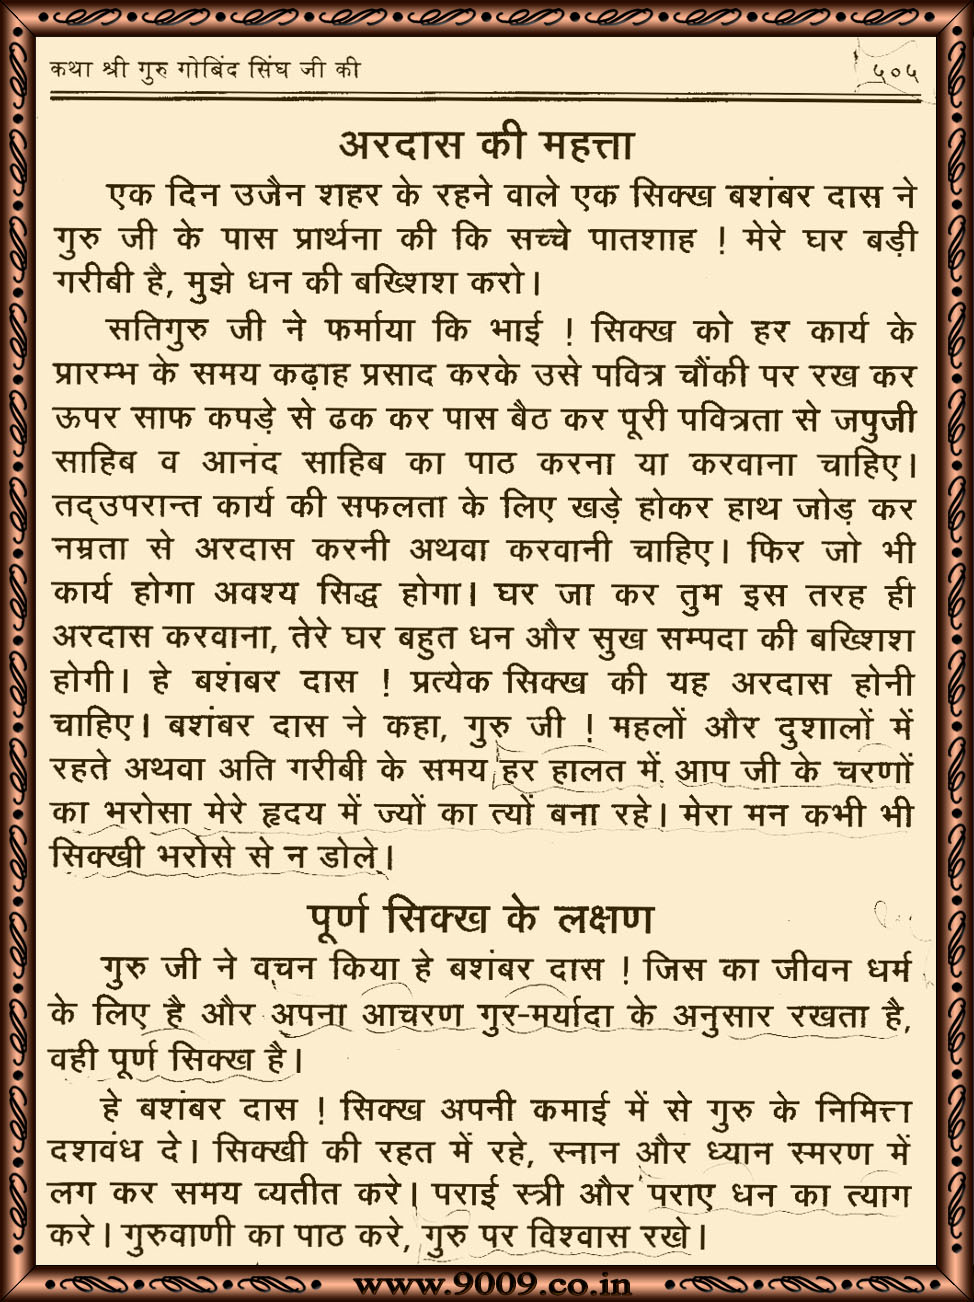 कथा श्री गुरु गोबिंद सिंघ जी की
५०५
अरदास की महत्ता
एक दिन उजैन शहर के रहने वाले एक सिक्ख बशंबर दास ने
गुरु जी के पास प्रार्थना की कि सच्चे पातशाह ! मेरे घर बड़ी
गरीबी है, मुझे धन की बख्शिश करो।
सतिगुरु जी ने फर्माया कि भाई ! सिक्ख को हर कार्य के
प्रारम्भ के समय कढ़ाह प्रसाद करके उसे पवित्र चौंकी पर रख कर
ऊपर साफ कपड़े से ढक कर पास बैठ कर पूरी पवित्रता से जपुजी
साहिब व आनंद साहिब का पाठ करना या करवाना चाहिए।
तद्उपरान्त कार्य की सफलता के लिए खड़े होकर हाथ जोड़ कर
नम्रता से अरदास करनी अथवा करवानी चाहिए। फिर जो भी
कार्य होगा अवश्य सिद्ध होगा। घर जा कर तुम इस तरह ही
अरदास करवाना, तेरे घर बहुत धन और सुख सम्पदा की बख्शिश
होगी। हे बशंबर दास ! प्रत्येक सिक्ख की यह अरदास होनी
चाहिए। बशंबर दास ने कहा, गुरु जी ! महलों और दुशालों में
रहते अथवा अति गरीबी के समय हर हालत में आप जी के चरणों
का भरोसा मेरे हृदय में ज्यों का त्यों बना रहे। मेरा मन कभी भी
सिक्खी भरोसे से न डोले।
पूर्ण सिक्ख के लक्षण
गुरु जी ने वचन किया हे बशंबर दास ! जिस का जीवन धर्म
के लिए है और अपना आचरण गुर-मर्यादा के अनुसार रखता है,
वही पूर्ण सिक्ख है।
हे बशंबर दास ! सिक्ख अपनी कमाई में से गुरु के निमित्ता
दशवंध दे। सिक्खी की रहत में रहे, स्नान और ध्यान स्मरण में
लग कर समय व्यतीत करे। पराई स्त्री और पराए धन का त्याग
करे। गुरुवाणी का पाठ करे, गुरु पर विश्वास रखे।
www.9009.co.in